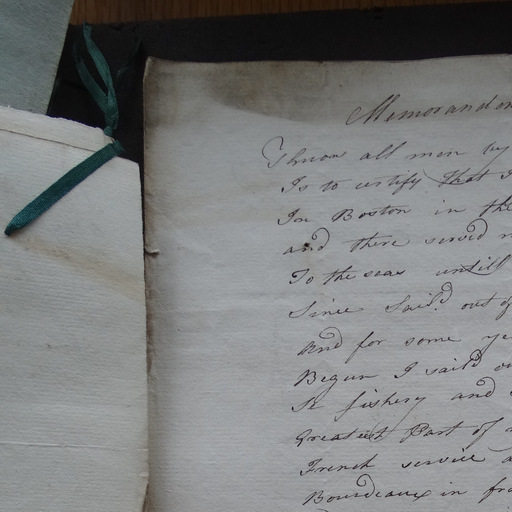 Memorandom
Know all men by
Is to certify that I
In Boston in the
and there servd
To the seas untill
Since Sail'd out of
And for some ye
Began I sail'd ou
St fishery and
Greatest Part of
French service a
Bourdeaux in fra